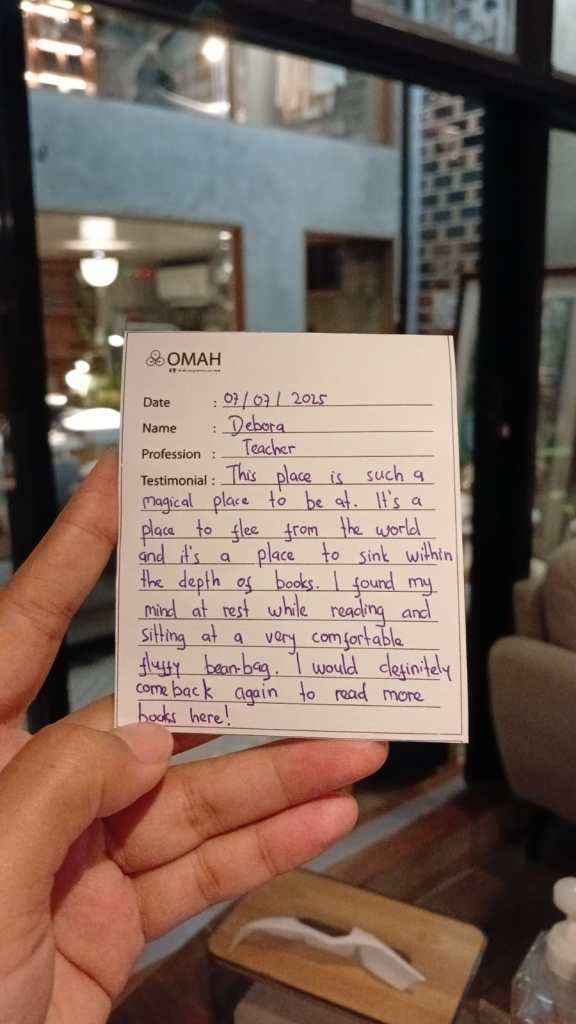 OMAH
Date : 07/07/2025
Name : Debora
Profession : Teacher
Testimonial : This place is such a
magical place to be at. It's a
place to flee from the world
and it's a place to sink within
the depth of books. I found my
mind at rest while reading and
sitting at a very comfortable
fluffy bean-bag. I would definitely
come back again to read more
books here!